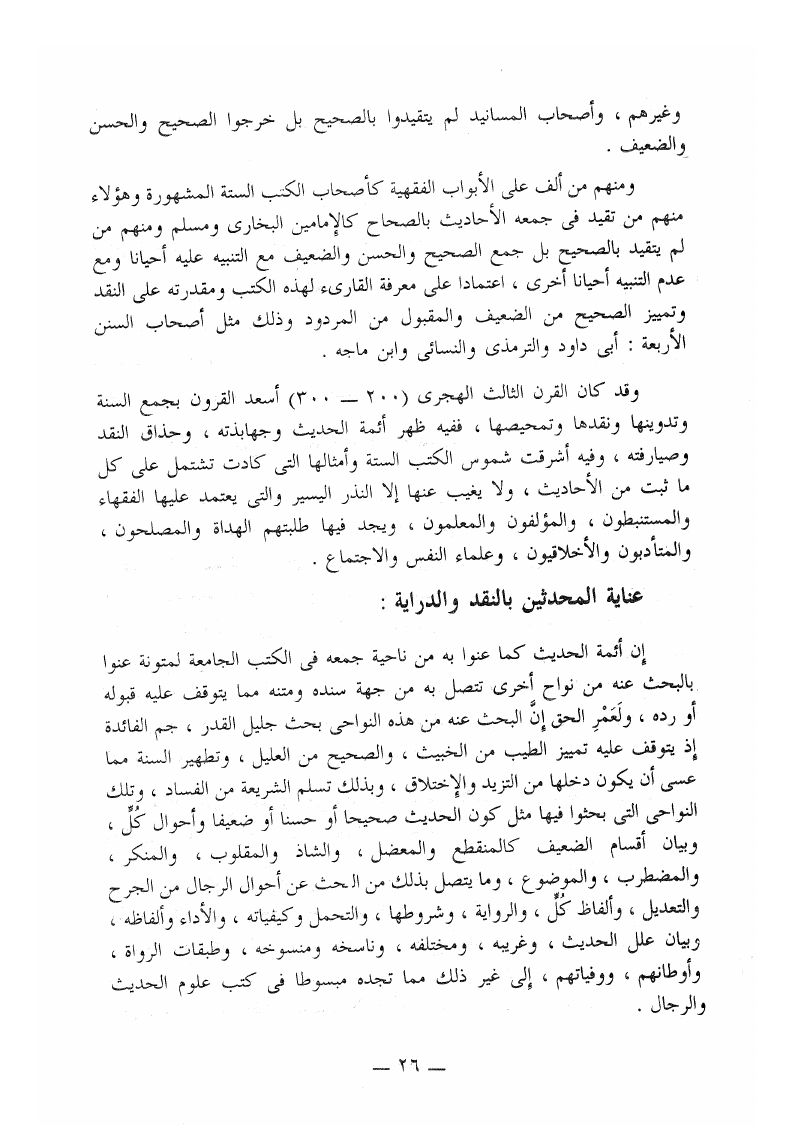 وغيرهم ، وأصحاب المسانيد لم يتقيدوا بالصحيح بل خرجوا الصحيح والحسن
والضعيف .
ومنهم من ألف على الأبواب الفقهية كأصحاب الكتب الستة المشهورة وهؤلاء
منهم من تقيد فى جمعه الأحاديث بالصحاح كالإمامين البخارى ومسلم ومنهم من
لم يتقيد بالصحيح بل جمع الصحيح والحسن والضعيف مع التنبيه عليه أحيانا ومع
عدم التنبيه أحيانا أخرى ، اعتمادا على معرفة القارىء لهذه الكتب ومقدرته على النقد
وتمييز الصحيح من الضعيف والمقبول من المردود وذلك مثل أصحاب السنن
الأربعة : أبى داود والترمذى والنسائى وابن ماجه .
وقد كان القرن الثالث الهجرى (٢٠٠ — ٣٠٠) أسعد القرون بجمع السنة
وتدوينها ونقدها وتمحيصها ، ففيه ظهر أئمة الحديث وجهابذته ، وحذاق النقد
وصيارفته ، وفيه أشرقت شموس الكتب الستة وأمثالها التى كادت تشتمل على كل
ما ثبت من الأحاديث ، ولا يغيب عنها إلا النذر اليسير والتى يعتمد عليها الفقهاء
والمستنبطون ، والمؤلفون والمعلمون ، ويجد فيها طلبتهم الهداة والمصلحون ،
والمتأدبون والأخلاقيون ، وعلماء النفس والاجتماع .
عناية المحدثين بالنقد والدراية :
إن أئمة الحديث كما عنوا به من ناحية جمعه فى الكتب الجامعة لمتونة عنوا
بالبحث عنه من نواح أخرى تتصل به من جهة سنده ومتنه مما يتوقف عليه قبوله
أو رده ، ولَعَمْرِ الحق إنَّ البحث عنه من هذه النواحى بحث جليل القدر ، جم الفائدة
إذ يتوقف عليه تمييز الطيب من الخبيث ، والصحيح من العليل ، وتطهير السنة مما
عسى أن يكون دخلها من التزيد والإختلاق ، وبذلك تسلم الشريعة من الفساد ، وتلك
النواحى التى بحثوا فيها مثل كون الحديث صحيحا أو حسنا أو ضعيفا وأحوال كُلٍّ ،
وبيان أقسام الضعيف كالمنقطع والمعضل ، والشاذ والمقلوب ، والمنكر ،
والمضطرب ، والموضوع ، وما يتصل بذلك من الحث عن أحوال الرجال من الجرح
والتعديل ، وألفاظ كُلٍّ ، والرواية ، وشروطها ، والتحمل وكيفياته ، والأداء وألفاظه ،
وبيان علل الحديث ، وغريبه ، ومختلفه ، وناسخه ومنسوخه ، وطبقات الرواة ،
وأوطانهم ، ووفياتهم ، إلى غير ذلك مما تجده مبسوطا فى كتب علوم الحديث
والرجال .
— ٢٦ —